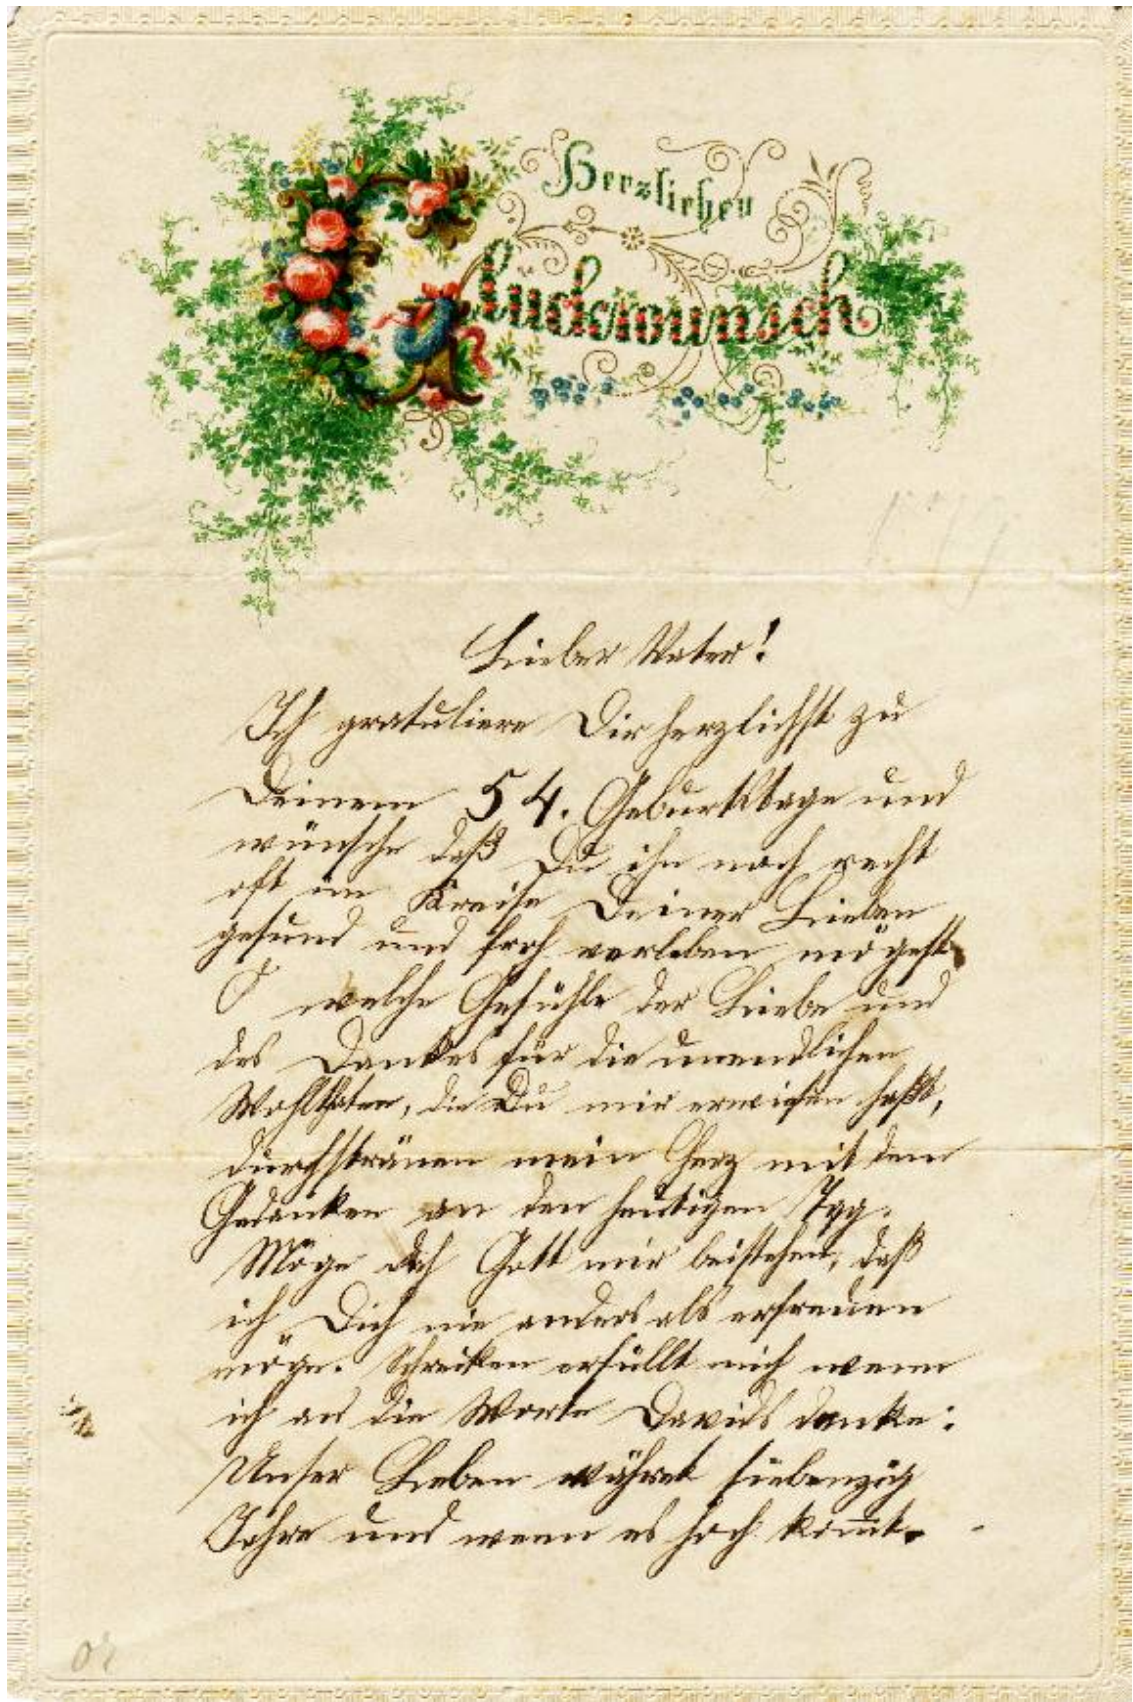 Herzlichen
Glückwunsch
Lieber Vater!
Ich gratuliere Dir herzlichst zu
Deinem 54. Geburtstage und
wünsche daß Du ihn noch recht
oft im Kreise Deiner Lieben
gesund und froh verleben mögest.
O welche Gefühle der Liebe und
des Dankes für die unendlichen
Wohlthaten, die Du mir erwiesen hast,
durchströmen mein Herz mit dem
Gedanken an den heutigen Tag.
Möge doch Gott mir beistehen, daß
ich Dich nie anders als erfreuen
möge. Schrecken erfüllt mich wenn
ich an die Worte Davids denke:
Unser Leben währet siebenzig
Jahre und wenn es hoch kommt.